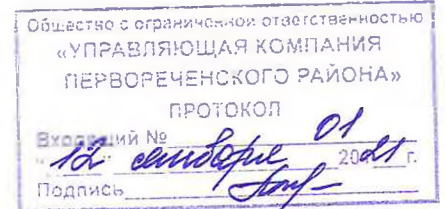 Общество с ограниченной ответственностью
«УПРАВЛЯЮЩАЯ КОМПАНИЯ
ПЕРВОРЕЧЕНСКОГО РАЙОНА»
ПРОТОКОЛ
Входящий № 01
"12 сентября 2021 г.
Подпись